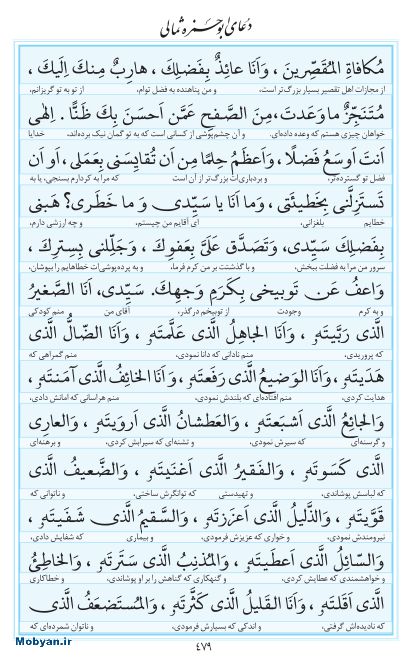 دعای ابوحمزه ثمالی
مُکافاةِ المُقَصِّرینَ ، وَاَنَا عائِذٌ بِفَضلِكَ ، هارِبٌ مِنكَ اِلَیكَ ،
از مجازات اهل تقصیر بسیار بزرگ‌تر است، و من پناهنده به فضل توام، از تو به تو گریزانم،
مُتَنَجِّزٌ ما وَعَدتَ، مِنَ الصَّفحِ عَمَّن اَحسَنَ بِكَ ظَنًّا . اِلٰهی
خواهان چیزی هستم که وعده داده‌ای. و آن چشم‌پوشی از کسانی است که به تو گمان نیک برده‌اند، خدایا
اَنتَ اَوسَعُ فَضلًا، وَاَعظَمُ حِلمًا مِن اَن تُقایِسَنی بِعَمَلی، اَو اَن
فضل تو گسترده‌تر، و بردباری‌ات بزرگ‌تر از آن است که مرا به کردارم بسنجی، یا به
تَستَزِلَّنی بِخَطیئَتی، وَما اَنَا یا سَیِّدی وَ ما خَطَری؟ هَبنی
خطایم بلغزانی، ای آقایم من چیستم، و چه ارزشی دارم،
بِفَضلِكَ سَیِّدی، وَتَصَدَّق عَلَیَّ بِعَفوِكَ ، وَجَلِّلنی بِسِترِكَ ،
سرور من مرا به فضلت ببخش، و با گذشتت بر من کرم فرما، و به پرده‌پوشی‌ات خطاهایم را بپوشان،
وَاعفُ عَن تَوبیخی بِکَرَمِ وَجهِكَ. سَیِّدی، اَنَا الصَّغیرُ
و به کرم وجودت از توبیخم درگذر، آقای من منم کودکی
الَّذی رَبَّیتَهُ ، وَاَنَا الجاهِلُ الَّذی عَلَّمتَهُ ، وَاَنَا الضّالُّ الَّذی
که پروریدی، منم نادانی که دانا نمودی، منم گمراهی که
هَدَیتَهُ ، وَاَنَا الوَضیعُ الَّذی رَفَعتَهُ ، وَاَنَا الخائِفُ الَّذی آمَنتَهُ ،
هدایت کردی، منم افتاده‌ای که بلندش نمودی، منم هراسانی که امانش دادی،
وَالجائِعُ الَّذی اَشبَعتَهُ ، وَالعَطشانُ الَّذی اَروَیتَهُ ، وَالعاری
و گرسنه‌ای که سیرش نمودی، و تشنه‌ای که سیرابش کردی، و برهنه‌ای
الَّذی کَسَوتَهُ ، وَالفَقیرُ الَّذی اَغنَیتَهُ ، وَالضَّعیفُ الَّذی
که لباسش پوشاندی، و تهیدستی که توانگرش ساختی، و ناتوانی که
قَوَّیتَهُ ، وَالذَّلیلُ الَّذی اَعزَزتَهُ ، وَالسَّقیمُ الَّذی شَفَیتَهُ ،
نیرومندش نمودی، و خواری که عزیزش فرمودی، و بیماری که شفایش دادی،
وَالسّائِلُ الَّذی اَعطَیتَهُ ، وَالمُذنِبُ الَّذی سَتَرتَهُ ، وَالخاطِئُ
و خواهشمندی که عطایش کردی، و گنهکاری که گناهش را بر او پوشاندی، و خطاکاری
الَّذی اَقَلتَهُ ، وَاَنَا القَلیلُ الَّذی کَثَّرتَهُ ، وَالمُستَضعَفُ الَّذی
که نادیده‌اش گرفتی، و اندکی که بسیارش فرمودی، و ناتوان شمرده‌ای که
۴۷۹
Mobyan.ir